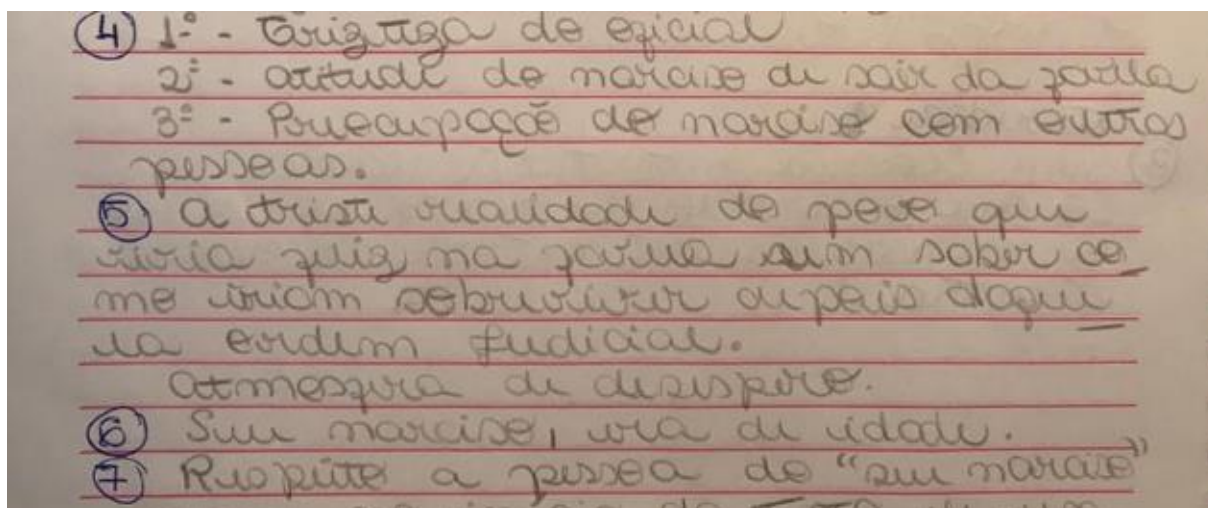 4 1º - Tristeza do oficial
2º - atitude de narciso de sair da favela
3º - Preocupação de narciso com outros
pessoas.
5 a triste realidade do povo que
vivia feliz na favela sem saber co_
mo iriam sobreviver depois daque_
la ordem judicial.
atmosfera de desespero.
6 Seu narciso, era de idade.
7 Respeito a pessoa do "seu narciso"